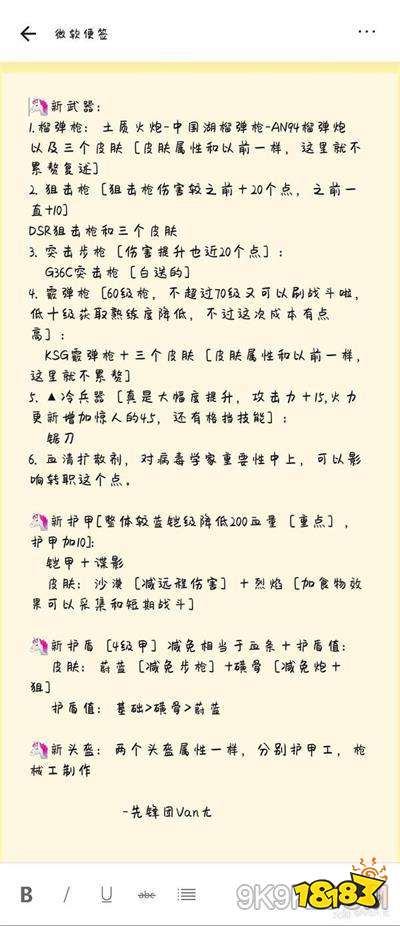 微软便签
新武器：
1.榴弹枪：土质火炮-中国湖榴弹枪-AN94榴弹炮
以及三个皮肤［皮肤属性和以前一样，这里就不
累赘复述］
2.狙击枪［狙击枪伤害较之前+20个点，之前一
直+10］
DSR狙击枪和三个皮肤
3.突击步枪［伤害提升也近20个点］：
G36C突击枪［白送的］
4.霰弹枪［60级枪，不超过70级又可以刷战斗啦，
低十级获取熟练度降低，不过这次成本有点
高］：
KSG霰弹枪+三个皮肤［皮肤属性和以前一样，
这里就不累赘］
5.▲冷兵器［真是大幅度提升，攻击力+15,火力
更新增加惊人的45，还有格挡技能］：
锯刀
6.血清扩散剂，对病毒学家重要性中上，可以影
响转职这个点。
新护甲[整体较蓝铠级降低200血量［重点］，
护甲加10]:
铠甲+谍影
皮肤：沙漠［减远程伤害］+烈焰［加食物效
果可以采集和短期战斗］
新护盾［4级甲］减免相当于血条+护盾值：
皮肤：蔚蓝［减免步枪］+磺骨［减免炮+
狙］
护盾值：基础>磺骨>蔚蓝
新头盔：两个头盔属性一样，分别护甲工，枪
械工制作
-先锋团Van尤
B I U abc
18183